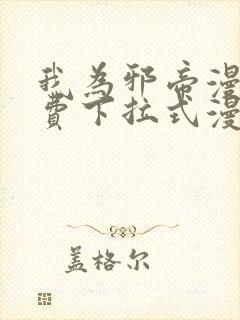 我为邪帝漫
费下拉式漫
盖格尔